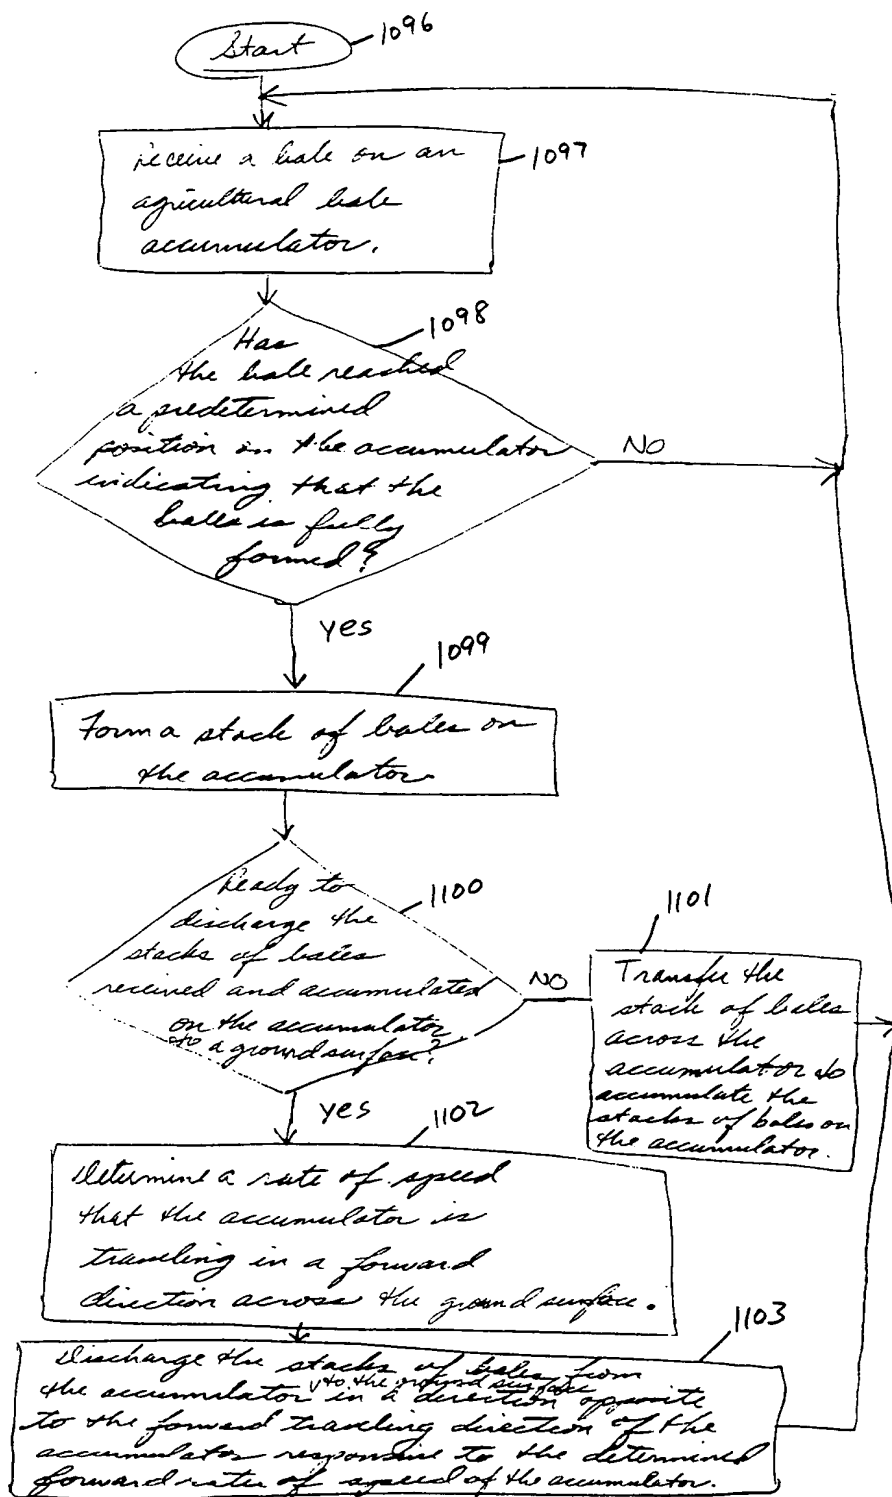 Start
1096
receive a bale on an
agricultural bale
accumulator.
1097
1098
Has
the bale reached
a predetermined
position on the accumulator
indicating that the
bales is fully
formed?
NO
yes
1099
Form a stack of bales on
the accumulator
1100
Ready to
discharge the
stacks of bales
received and accumulated
on the accumulator
to a ground surface?
NO
yes
1101
Transfer the
stack of bales
across the
accumulator to
accumulate the
stacks of bales on
the accumulator.
1102
Determine a rate of speed
that the accumulator is
traveling in a forward
direction across the ground surface.
1103
Discharge the stacks of bales from
to the ground surface
the accumulator in a direction opposite
to the forward traveling direction of the
accumulator responsive to the determined
forward rate of speed of the accumulator.